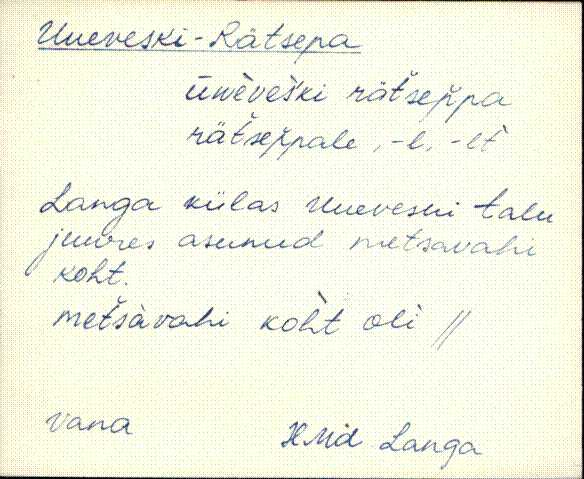 Uueveski-Rätsepa
ūwèveški rätšeppa
rätšeppale, -l, -lt
Langa külas Uueveski talu
juures asunud metsavahi
koht.
metšàvahi kòht oli //
vana
HMd Langa